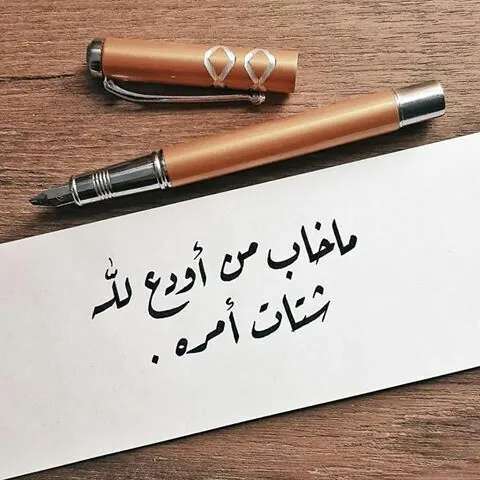 ماخاب من أودع لله
شتات أمره .